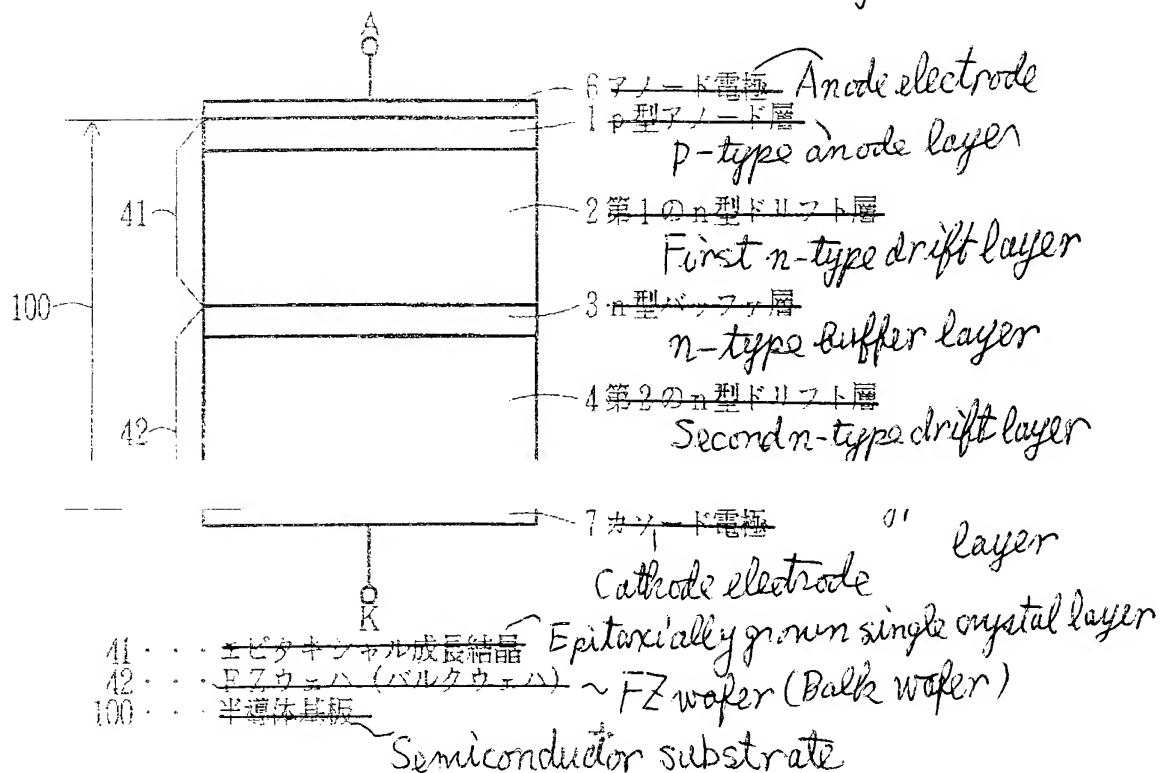 A
6 アノード電極 Anode electrode
1 p型アノード層
p-type anode layer
41
2 第1のn型ドリフト層
First n-type drift layer
100
3 n型バッファ層
n-type buffer layer
4 第2のn型ドリフト層
42
Second n-type drift layer
7 カソード電極 layer
Cathode electrode
K
41 ・・・ エピタキシャル成長結晶 Epitaxially grown single crystal layer
42 ・・・ FZウェハ (バルクウェハ) ~ FZ wafer (Balk wafer)
100 ・・・ 半導体基板
Semiconductor substrate